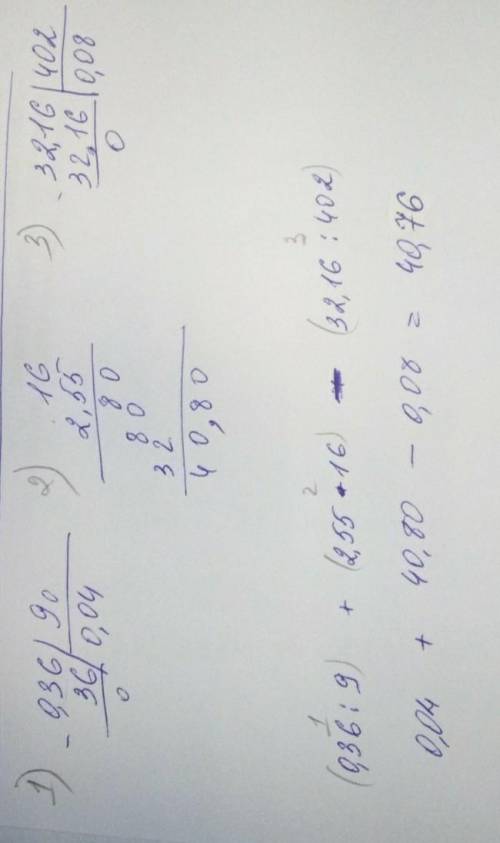 1) - 0,36 | 9
36 | 0,04
0
2) 16
2,55
80
80
32
40,80
3) - 32,16 | 402
32,16 | 0,08
0
1 2 3
(0,36 : 9) + (2,55 • 16) - (32,16 : 402)
0,04 + 40,80 - 0,08 = 40,76